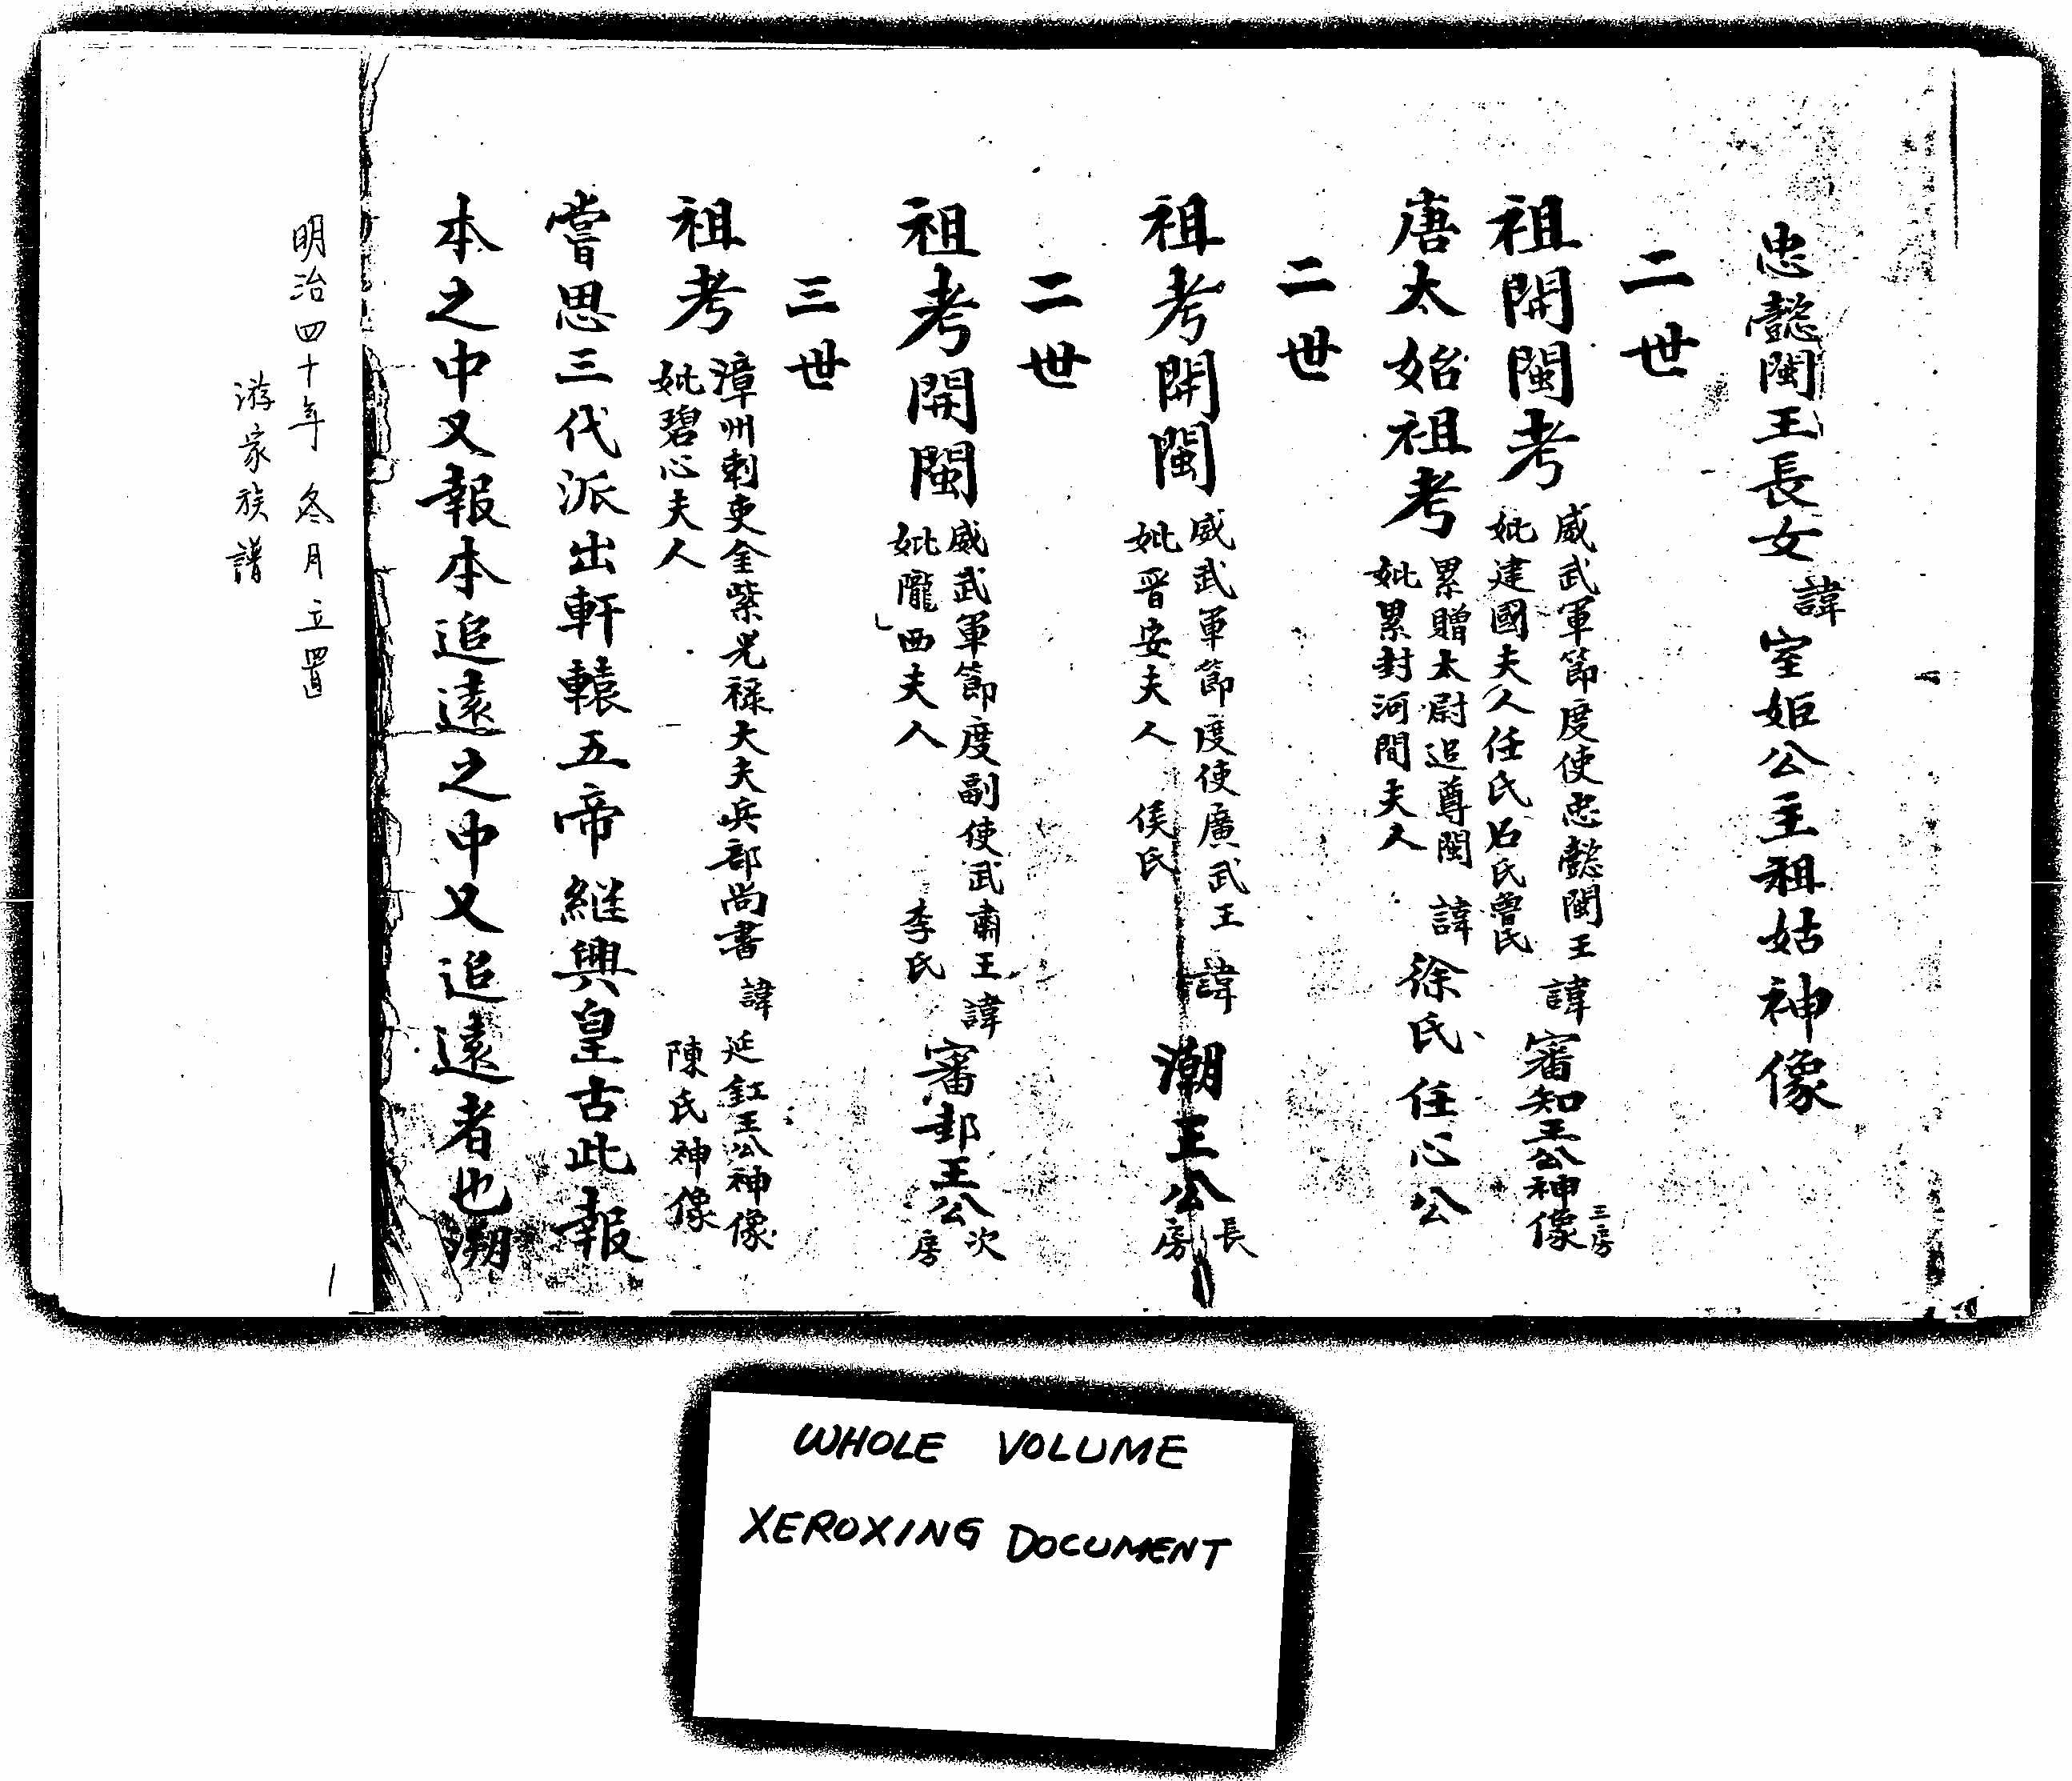 忠懿閩王長女諱室姫公主祖姑神像
二世
祖開閩考
威武軍節度使忠懿閩王諱審知王公神像三房
妣建國夫人任氏石氏曾氏
唐太始祖考
累贈太尉追尊閩諱徐氏任心公
妣累封河間夫人
二世
祖考開閩
威武軍節度使廣武王諱潮王公長房
妣晋安夫人侯氏
二世
祖考開閩
威武軍節度副使武肅王諱審邽王公次房
妣隴西夫人李氏
三世
祖考
漳州刺吏金紫光祿大夫兵部尚書諱延釭王公神像
妣碧心夫人陳氏神像
嘗思三代派出軒轅五帝継興皇古此報
本之中又報本追遠之中又追遠者也溯
明治四十年冬月立置
游家族譜
1
WHOLE VOLUME
XEROXING DOCUMENT